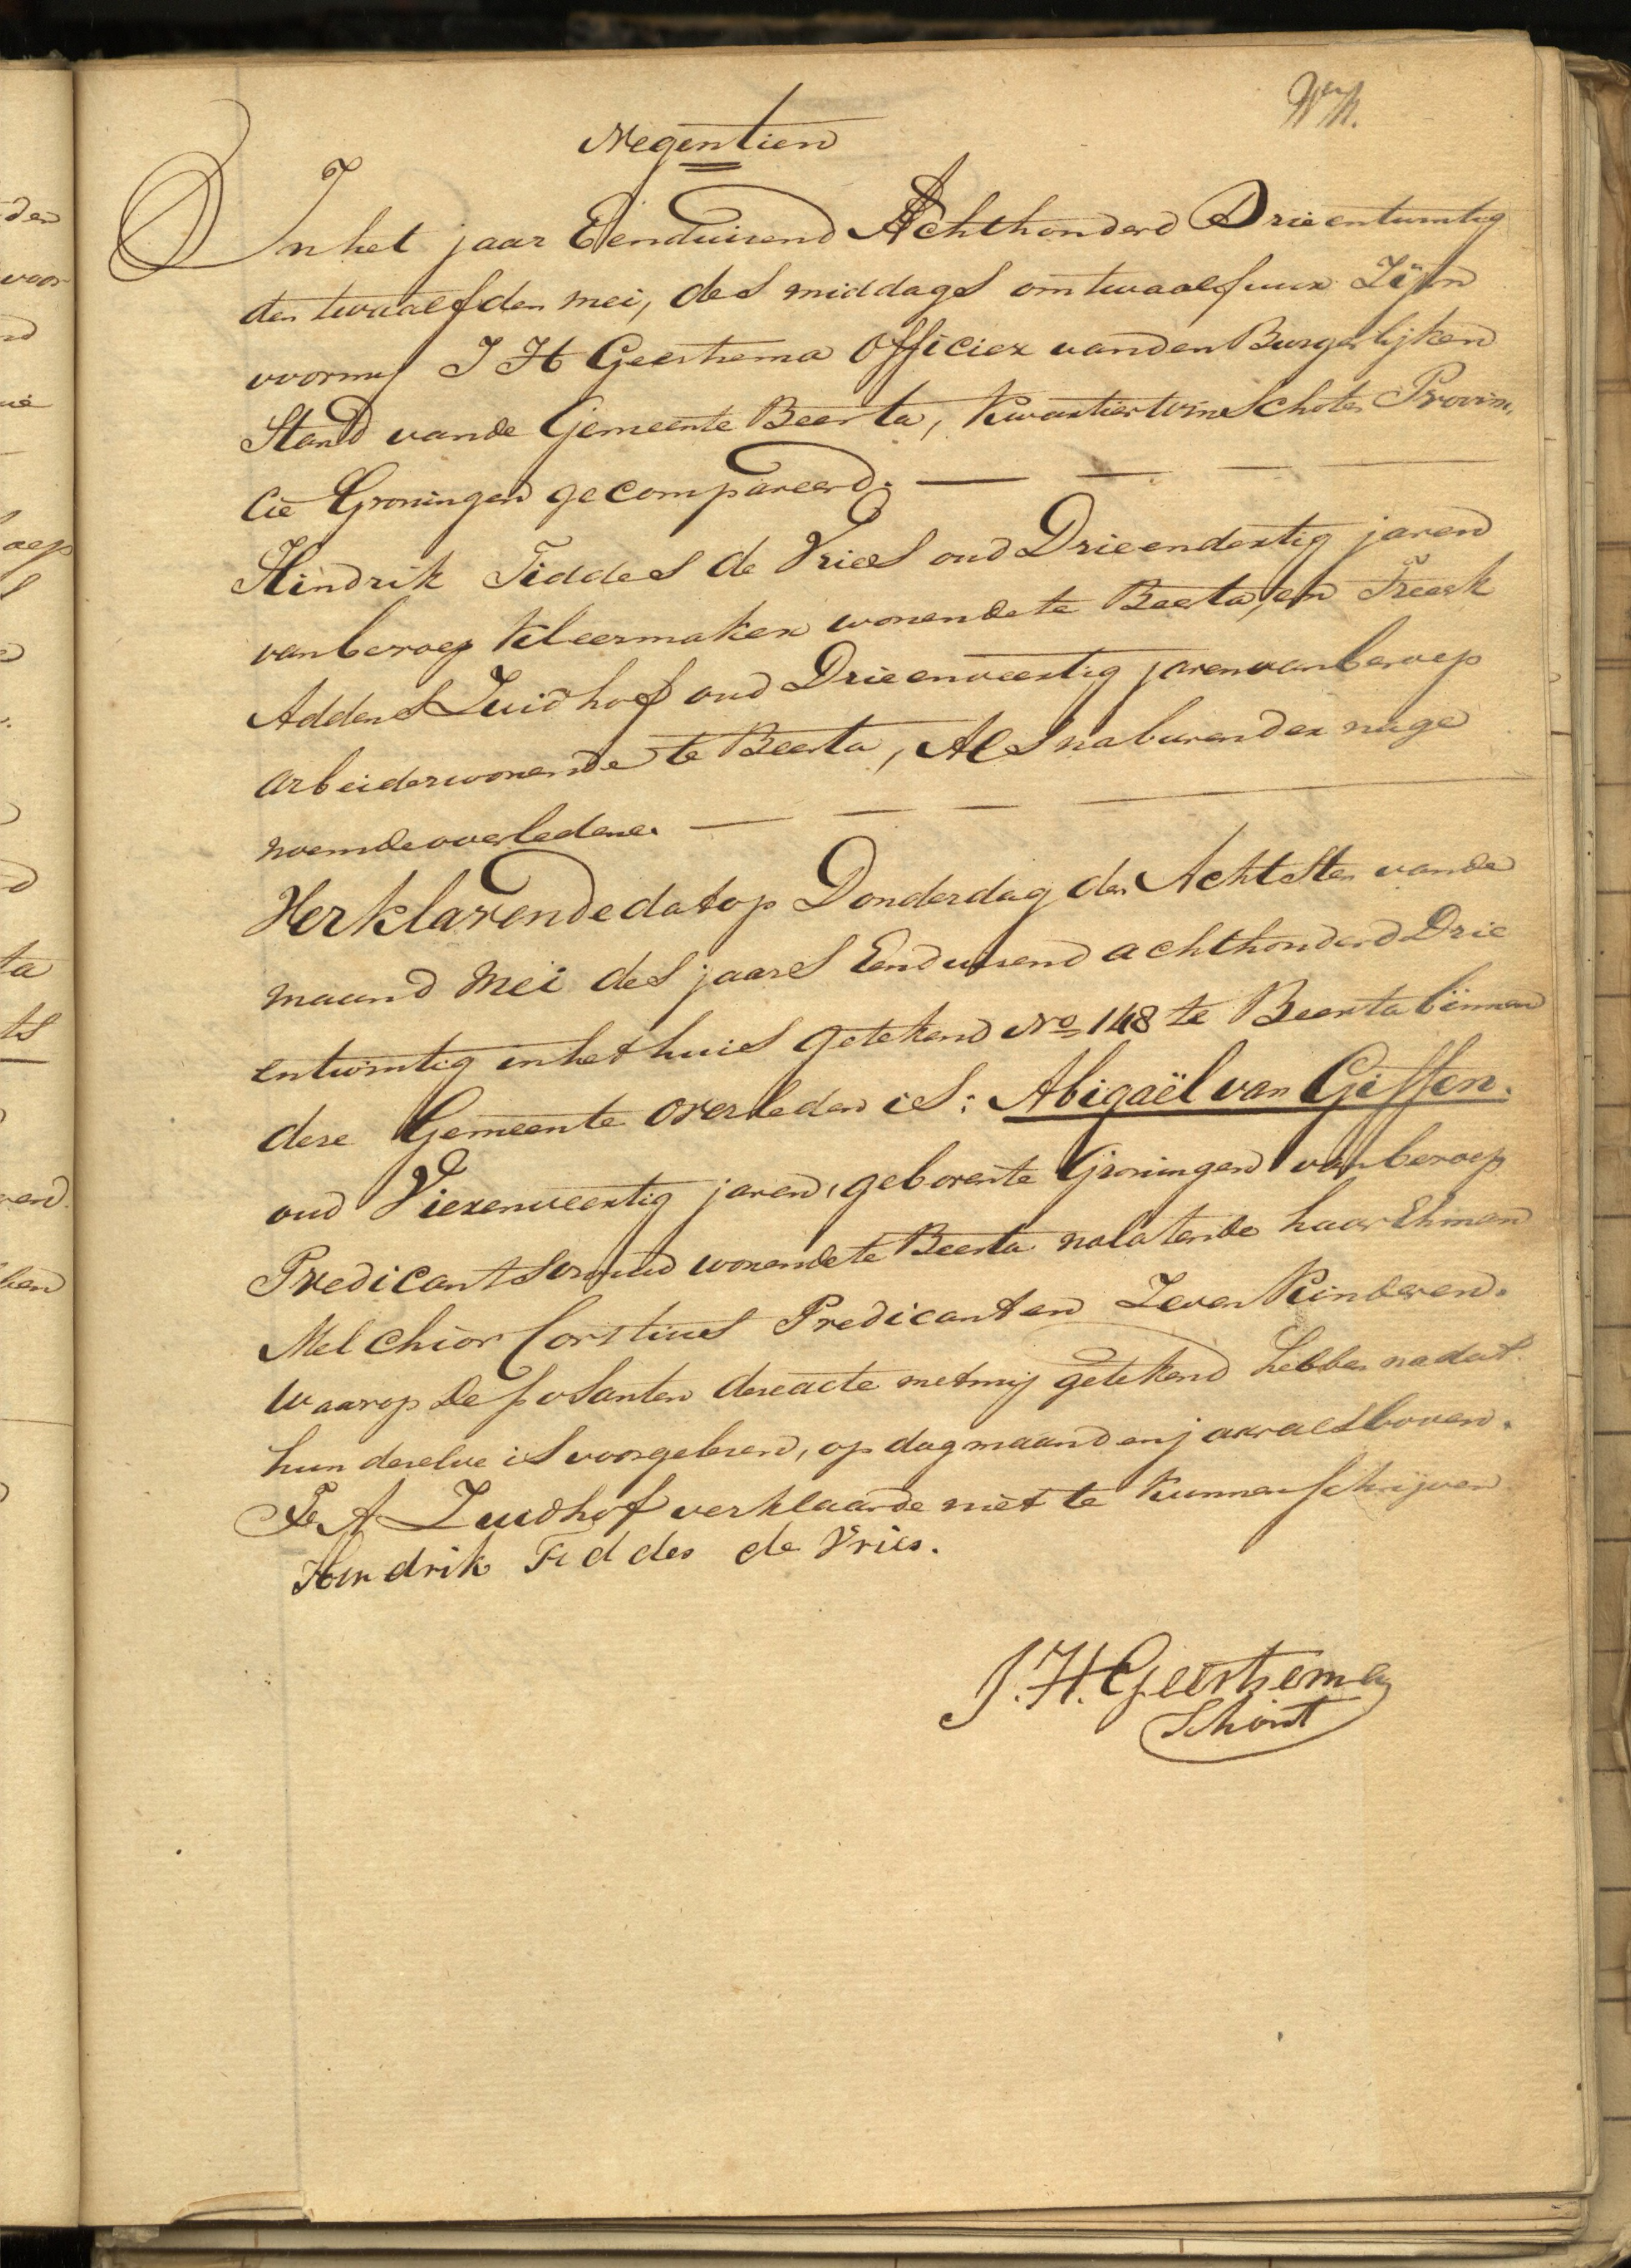 Negentien
In het jaar Eenduisend Achthonderd Drieentwintig
den twaalfden mei, des middags om twaalf uur Zijn
voor mij J H Geertsema Officier van den Burgerlijken
Stand van de Gemeente Beerta, Kwartier Winschoten Provin,
cie Groningen gecompareerd. — — —
Hindrik Fiddes de Vries oud Drieendertig jaren
van beroep Kleermaker wonende te Beerta, en Freerk
Addens Zuidhof oud Drieenveertig jaren van beroep
arbeider wonende te Beerta, Als naburen der nage
noemde overledene. — — —
Verklarende dat op Donderdag den Achtsten van de
maand Mei des jaars Eenduisend achthonderd Drie
entwintig in het huis getekend No 148 te Beerta binnen
dese Gemeente overleden is: Abigaël van Giffen.
oud Vierenveertig jaren, geboren te Groningen van beroep
Predicants vrouw wonende te Beerta nalatende haar Ehman
Melchior Corstius Predicant en Zeven Kinderen.
Waarop deposanten dese acte met mij getekend hebben nadat
hun deselve is voorgelesen, op dag maand en jaar als boven.
Fr A Zuidhof verklaarde niet te kunnen schrijven
Hindrik Fiddes de Vries.
J. H. Geertsema
Schout